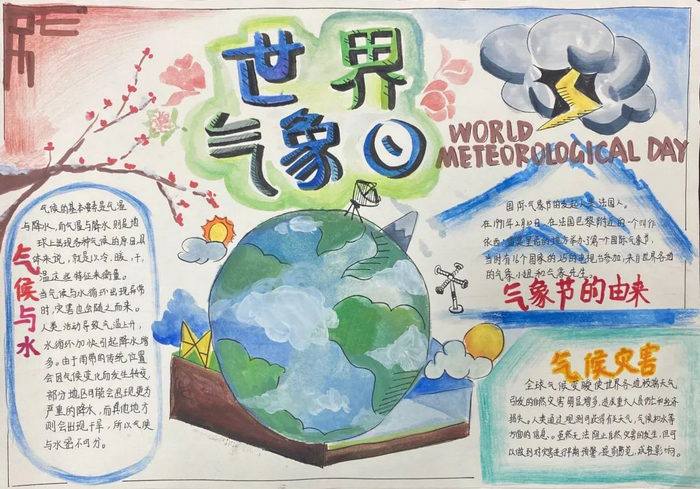 世界
气象日
WORLD
METEOROLOGICAL DAY
气候与水
气候的基本要素是气温
与降水,而气温与降水则是地
球上呈现各种气候的原因,具
体来说,就是以冷、暖、干、
湿这些特征来衡量。
当气候与水循环出现异常
时,灾害也会随之而来。
人类活动导致气温上升,
水循环加快引起降水增
多。由于雨带的传统位置
会因气候变化而发生转变,
部分地区可能会出现更为
严重的降水,而其他地方
则会出现干旱,所以气候
与水密不可分。
国际气象节的发起人是法国人。
在1991年2月10日,在法国巴黎附近的一个叫作
依西
里茜的地方举办了第一个国际气象节,
当时有16个国家的25的电视台参加,来自世界各地
的气象小姐和气象先生。
气象节的由来
气候灾害
全球气候变暖使世界各造极端天气
引发的自然灾害明显增多,造成重大人员伤亡和经济
损失。人类通过观测可获得有关天气,气候和水等
方面的信息。虽然无法阻止自然灾害的发生,但可
以做到对灾害进行早期预警,提前防范,减轻影响。